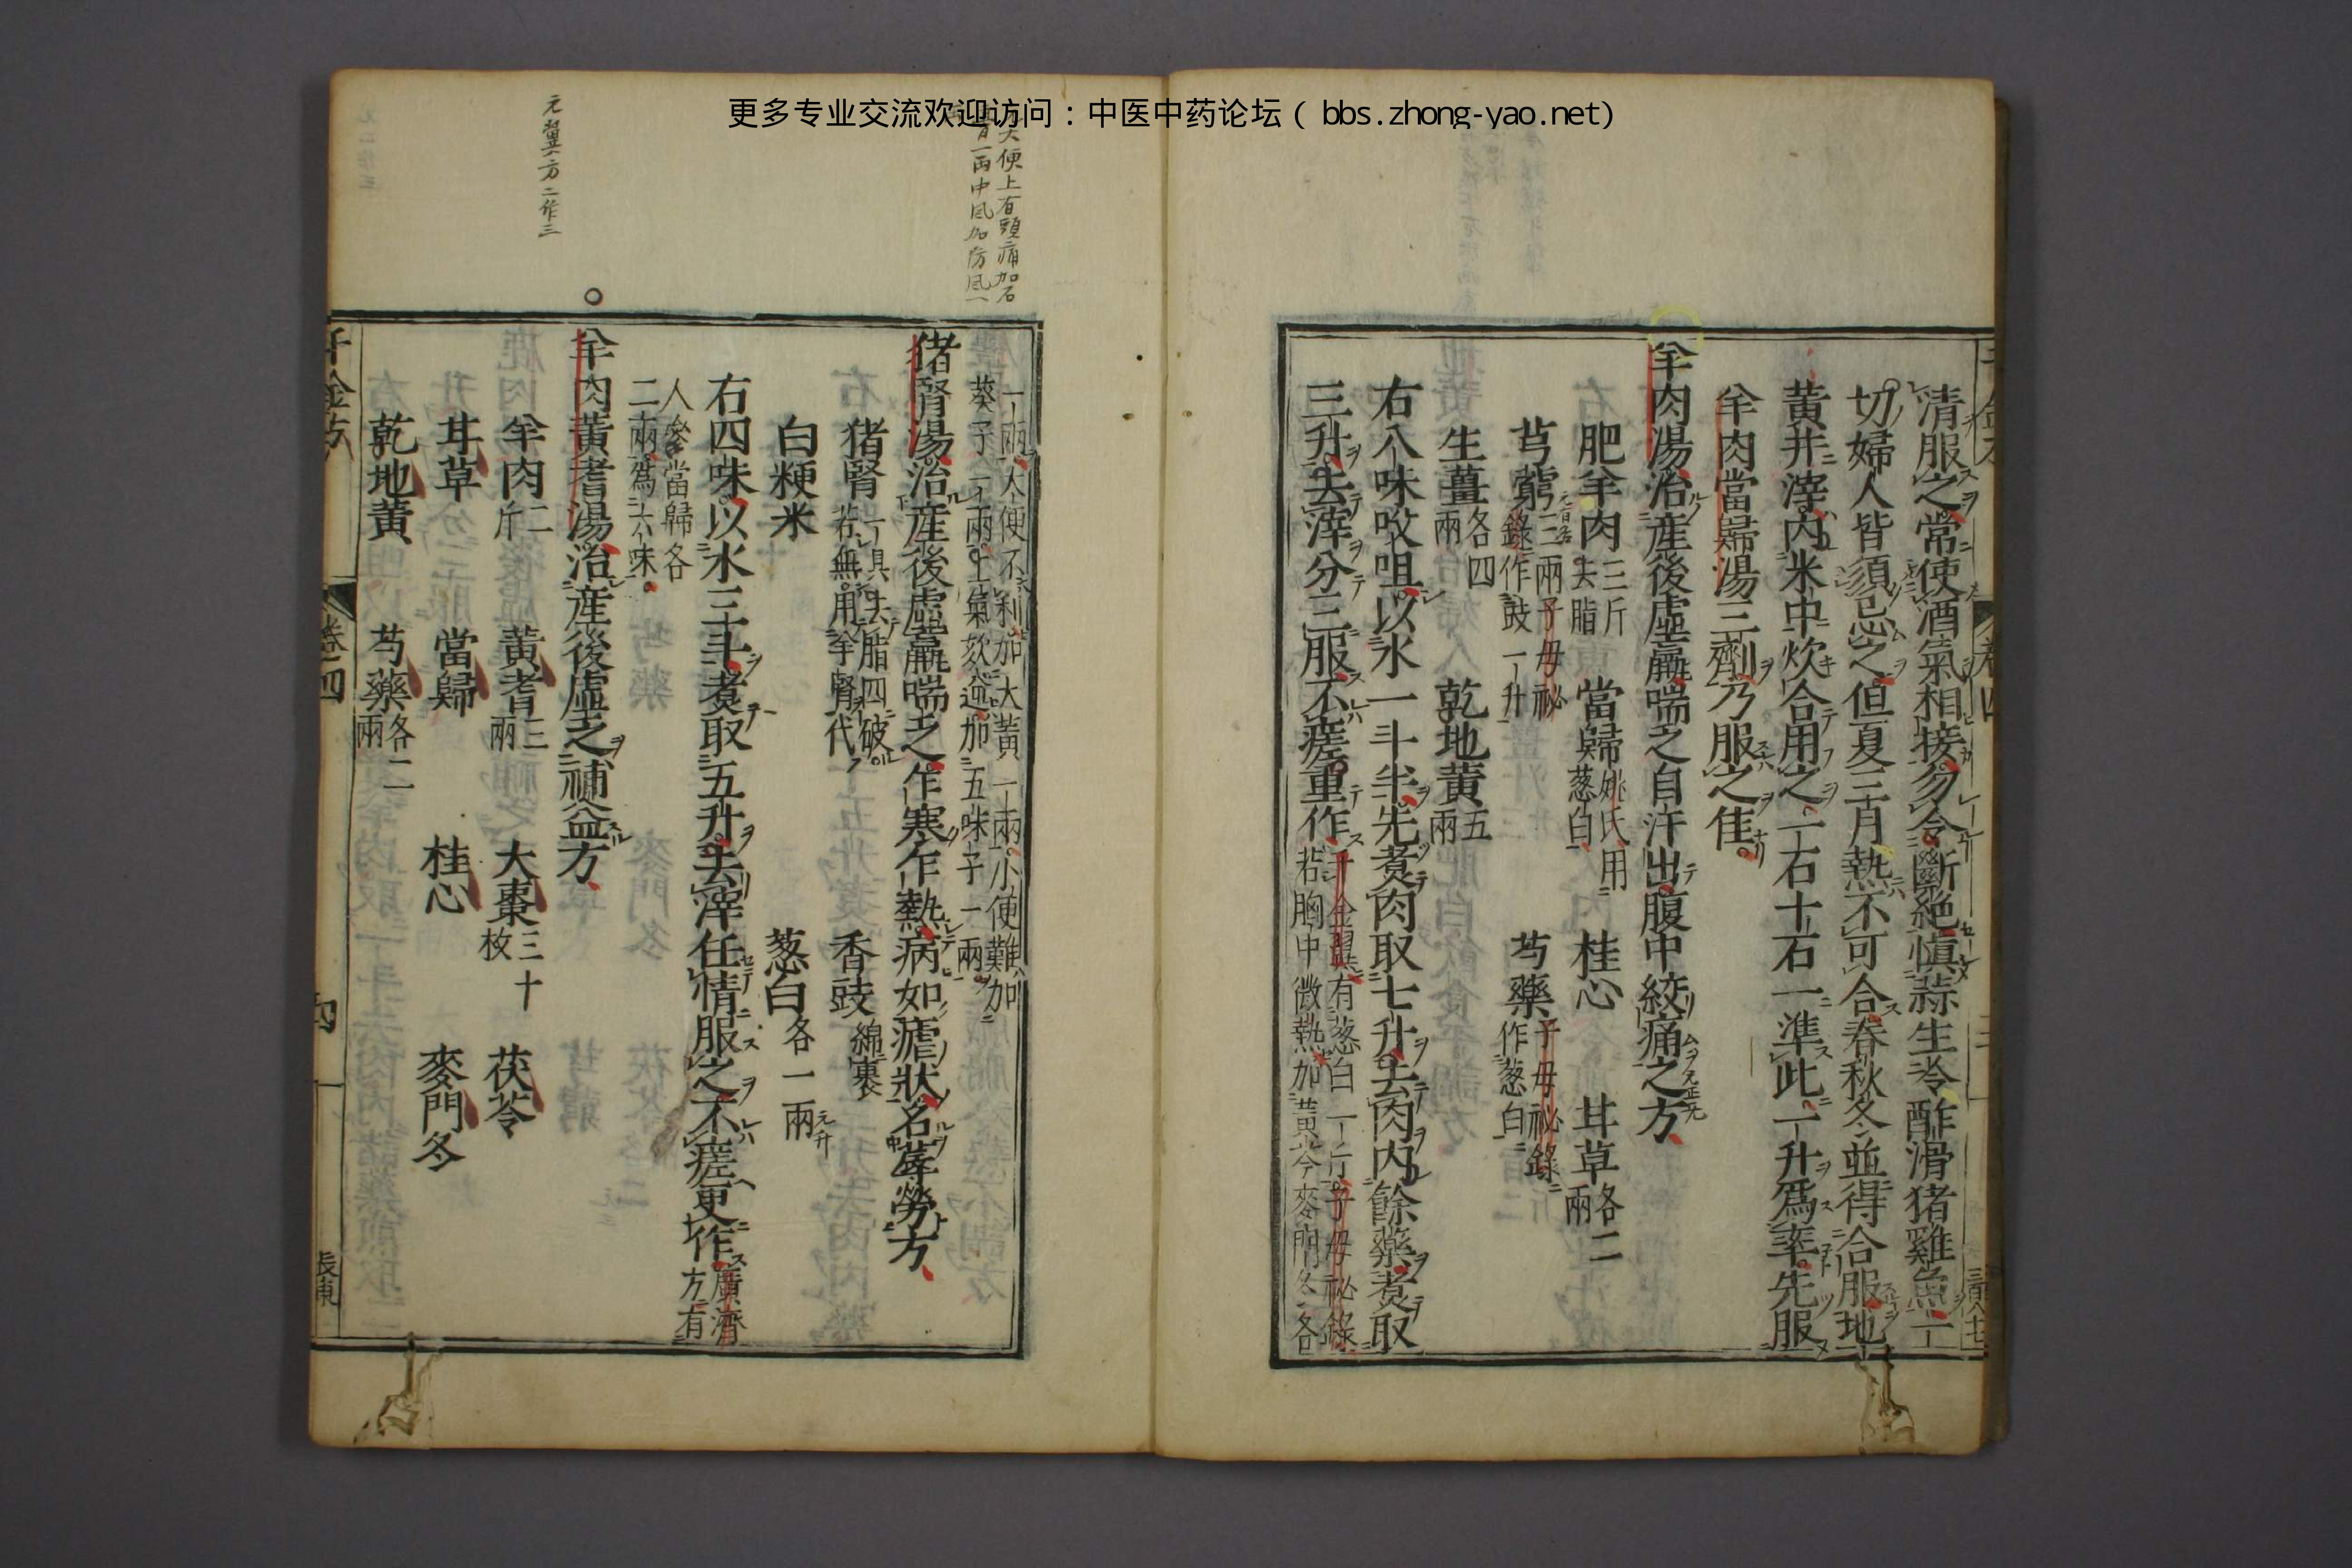 更多专业交流欢迎访问：中医中药论坛（bbs.zhong-yao.net）
清服之常使酒氣相接勿令斷絶慎蒜生冷酢滑猪雞魚一
切婦人皆須忌之但夏三月熱不可合春秋冬並得合服地
黄并滓内米中炊合用之一石十石一準此一升爲率先服
羊肉當歸湯三劑乃服之佳
羊肉湯治産後虚羸喘乏自汗出腹中絞痛之方
肥羊肉三斤去脂 當歸姚氏用葱白 桂心 甘草各二兩
芎藭三兩子母祕錄作豉一升 芍藥子母祕錄作葱白
生薑各四兩 乾地黄五兩
右八味㕮咀以水一斗半先煑肉取七升去肉内餘藥煑取
三升去滓分三服不瘥重作千金翼有葱白一斤子母祕錄若胸中微熱加黄芩麥門冬各
一兩大便不利加大黄一兩小便難加葵子一兩上氣欬逆加五味子一兩
猪腎湯治産後虚羸喘乏乍寒乍熱病如瘧狀名蓐勞方
猪腎一具去脂四破若無用羊腎代 香豉綿裹
白粳米 葱白各一兩
右四味以水三斗煑取五升去滓任情服之不瘥更作廣濟方有
人參當歸各二兩爲六味
羊肉黄耆湯治産後虚乏補益方
羊肉二斤 黄耆三兩 大棗三十枚 茯苓
甘草 當歸 桂心 麥門冬
乾地黄 芍藥各二兩
千金方 卷四 四 長東
大便上有頭痛加石
膏一兩中風加防風一
元翼方二作三